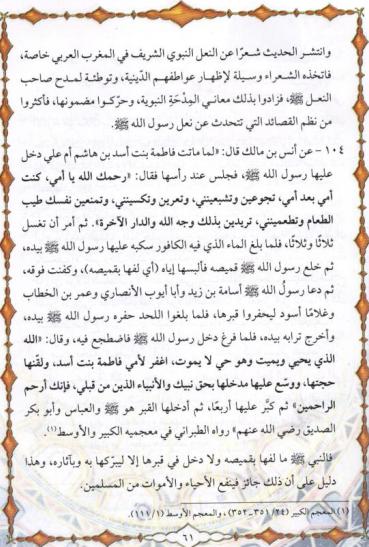 وانتشر الحديث شعرًا عن النعل النبوي الشريف في المغرب العربي خاصة،
فاتخذه الشعراء وسيلة لإظهار عواطفهم الدّينية، وتوطئة لمدح صاحب
النعل ﷺ، فزادوا بذلك معاني المِدْحَةِ النبوية، وحرّكوا مضمونها، فأكثروا
من نظم القصائد التي تتحدث عن نعل رسول الله ﷺ.
١٠٤ - عن أنس بن مالك قال: «لما ماتت فاطمة بنت أسد بن هاشم أم علي دخل
عليها رسول الله ﷺ، فجلس عند رأسها فقال: «رحمك الله يا أمي، كنت
أمي بعد أمي، تجوعين وتشبعينني، وتعرين وتكسينني، وتمنعين نفسك طيب
الطعام وتطعمينني، تريدين بذلك وجه الله والدار الآخرة». ثم أمر أن تغسل
ثلاثًا وثلاثًا، فلما بلغ الماء الذي فيه الكافور سكبه عليها رسول الله ﷺ بيده،
ثم خلع رسول الله ﷺ قميصه فألبسها إياه (أي لفها بقميصه)، وكفنت فوقه،
ثم دعا رسولُ الله ﷺ أسامة بن زيد وأبا أيوب الأنصاري وعمر بن الخطاب
وغلامًا أسود ليحفروا قبرها، فلما بلغوا اللحد حفره رسول الله ﷺ بيده،
وأخرج ترابه بيده، فلما فرغ دخل رسول الله ﷺ فاضطجع فيه، وقال: «الله
الذي يحيي ويميت وهو حي لا يموت، اغفر لأمي فاطمة بنت أسد، ولقّنها
حجتها، ووسّع عليها مدخلها بحق نبيك والأنبياء الذين من قبلي، فإنك أرحم
الراحمين» ثم كبَّر عليها أربعًا، ثم أدخلها القبر هو ﷺ والعباس وأبو بكر
الصديق رضي الله عنهم» رواه الطبراني في معجميه الكبير والأوسط(١).
فالنبي ﷺ ما لفها بقميصه ولا دخل في قبرها إلا ليبرّكها به وبآثاره، وهذا
دليل على أن ذلك جائز فينفع الأحياء والأموات من المسلمين.
(١) المعجم الكبير (٢٤/ ٣٥١-٣٥٢)، والمعجم الأوسط (١/ ١١١).
٦١